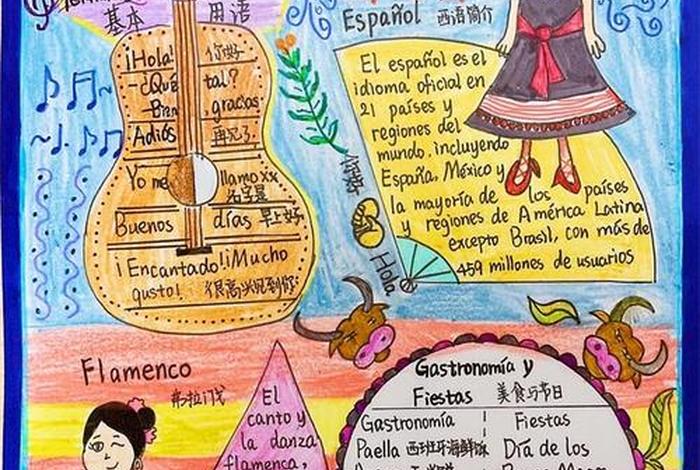 基本 用语
¡Hola! 你好
-¿Qué tal?
-Bien gracias
Adiós 再见了
Yo me llamo xx
名字是
Buenos días 早上好
¡Encantado!¡Mucho
gusto! 很高兴见到你
Español 西语简介
El español es el
idioma oficial en
21 países y
regiones del
mundo, incluyendo
España, México y
la mayoría de los países
y regiones de América Latina
excepto Brasil, con más de
459 millones de usuarios
你好
Hola
Flamenco
弗拉门戈
El
canto y
la danza
flamenca,
Gastronomía y
Fiestas 美食与节日
Gastronomía Fiestas
Paella 西班牙海鲜饭 Día de los